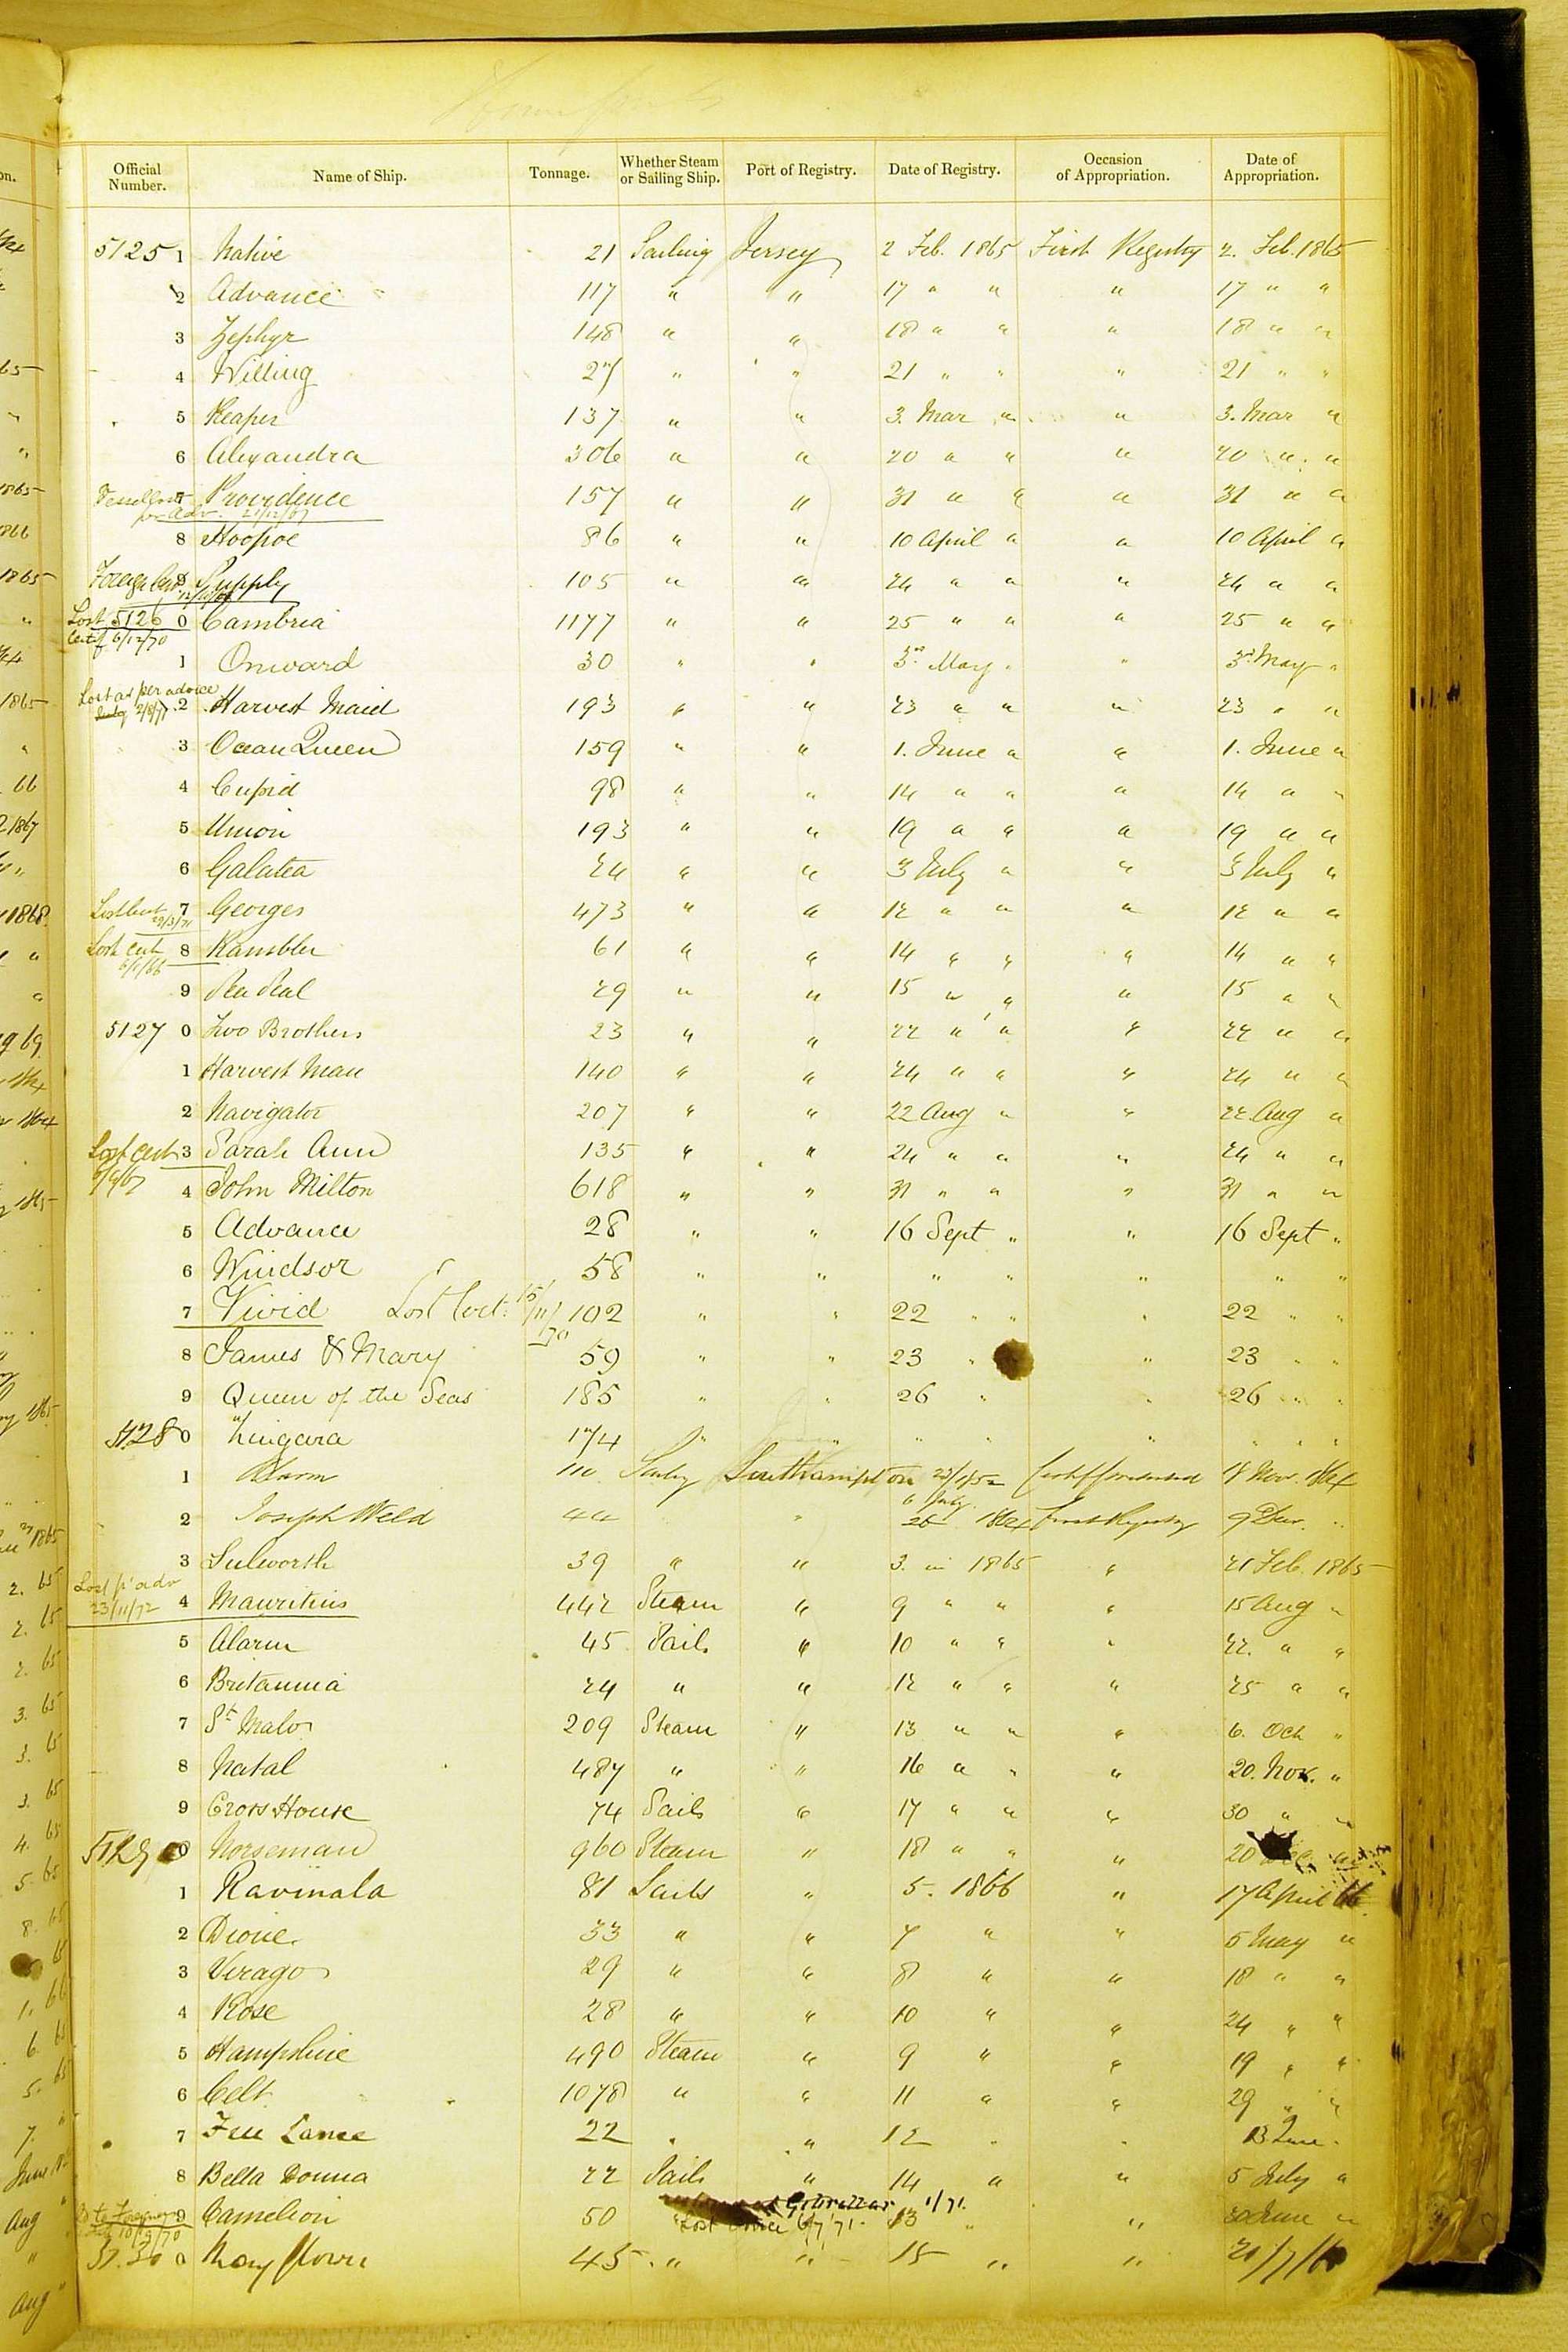 Official Number. Name of Ship. Tonnage. Whether Steam or Sailing Ship. Port of Registry. Date of Registry. Occasion of Appropriation. Date of Appropriation.
5125 1 Native 21 Sailing Jersey 2 Feb. 1865 First Registry 2. Feb. 1865
2 Advance 117 " " 17 " " " 17 " "
3 Zephyr 148 " " 18 " " " 18 " "
4 Willing 27 " " 21 " " " 21 " "
5 Reaper 137 " " 3. Mar " " 3. Mar "
6 Alexandra 306 " " 20 " " " 20 " "
7 Providence 157 " " 31 " " " 31 " "
per adv. 21/12/67
8 Hoopoe 86 " " 10 April " " 10 April "
9 Supply 105 " " 24 " " " 24 " "
Lost 5126 0 Cambria 1177 " " 25 " " " 25 " "
Certif 6/12/70
1 Onward 30 " " 3rd May " " 3rd May "
Lost as per advice
2/8/71 2 Harvest Maid 193 " " 23 " " " 23 " "
3 Ocean Queen 159 " " 1. June " " 1. June "
4 Cupid 98 " " 14 " " " 14 " "
5 Union 193 " " 19 " " " 19 " "
6 Galatea 24 " " 3 July " " 3 July "
Lost cert 7 Georges 473 " " 12 " " " 12 " "
29/3/71
Lost cert 8 Rambler 61 " " 14 " " " 14 " "
9 Sea Seal 29 " " 15 " " " 15 " "
5127 0 Two Brothers 23 " " 22 " " " 22 " "
1 Harvest Man 140 " " 24 " " " 24 " "
2 Navigator 207 " " 22 Aug " " 22 Aug "
Lost cert 3 Sarah Ann 135 " " 24 " " " 24 " "
4 John Milton 618 " " 31 " " " 31 " "
5 Advance 28 " " 16 Sept " " 16 Sept "
6 Windsor 58 " " " " " " "
7 Vivid Lost Cert. 15/11/70 102 " " 22 " " " 22 " "
8 James & Mary 59 " " 23 " " 23 " "
9 Queen of the Seas 185 " " 26 " " 26 " "
5128 0 Niagara 174 " " " " " " " "
1 Alarm 110 Sailing Southampton 18 Nov. 1864
2 Joseph Weld 44 " 6 July 1864 First Registry 9 Dec. "
3 Lulworth 39 " " 3. in 1865 " 21 Feb. 1865
Lost pr adv
23/11/72 4 Mauritius 442 Steam " 9 " " " 15 Aug "
5 Alarm 45 Sails " 10 " " " 22. " "
6 Britannia 24 " " 12 " " " 25 " "
7 St Malo 209 Steam " 13 " " " 6. Oct "
8 Natal 487 " " 16 " " " 20. Nov. "
9 Cross House 74 Sails " 17 " " " 30 " "
5129 0 Norseman 960 Steam " 18 " " " 20 Dec. "
1 Ravinala 81 Sails " 5. 1866 " 17 April 66
2 Dione 33 " " 7 " " 5 May "
3 Virago 29 " " 8 " " 18 " "
4 Rose 28 " " 10 " " 24 " "
5 Hampshire 490 Steam " 9 " " 19 " "
6 Celt 1078 " " 11 " " 29 " "
7 Free Lance 22 " " 12 " " 13 June "
8 Bella Donna 22 Sails " 14 " " 5 July "
9 Cameleon 50 Gibraltar 1/71. 13 " " 30 June "
10/9/70 Lost 6/7/71.
5130 0 May flower 45 " " 15 " "